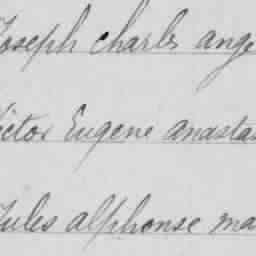 Joseph charles ange
Victor Eugene anastas
Jules alphonse ma